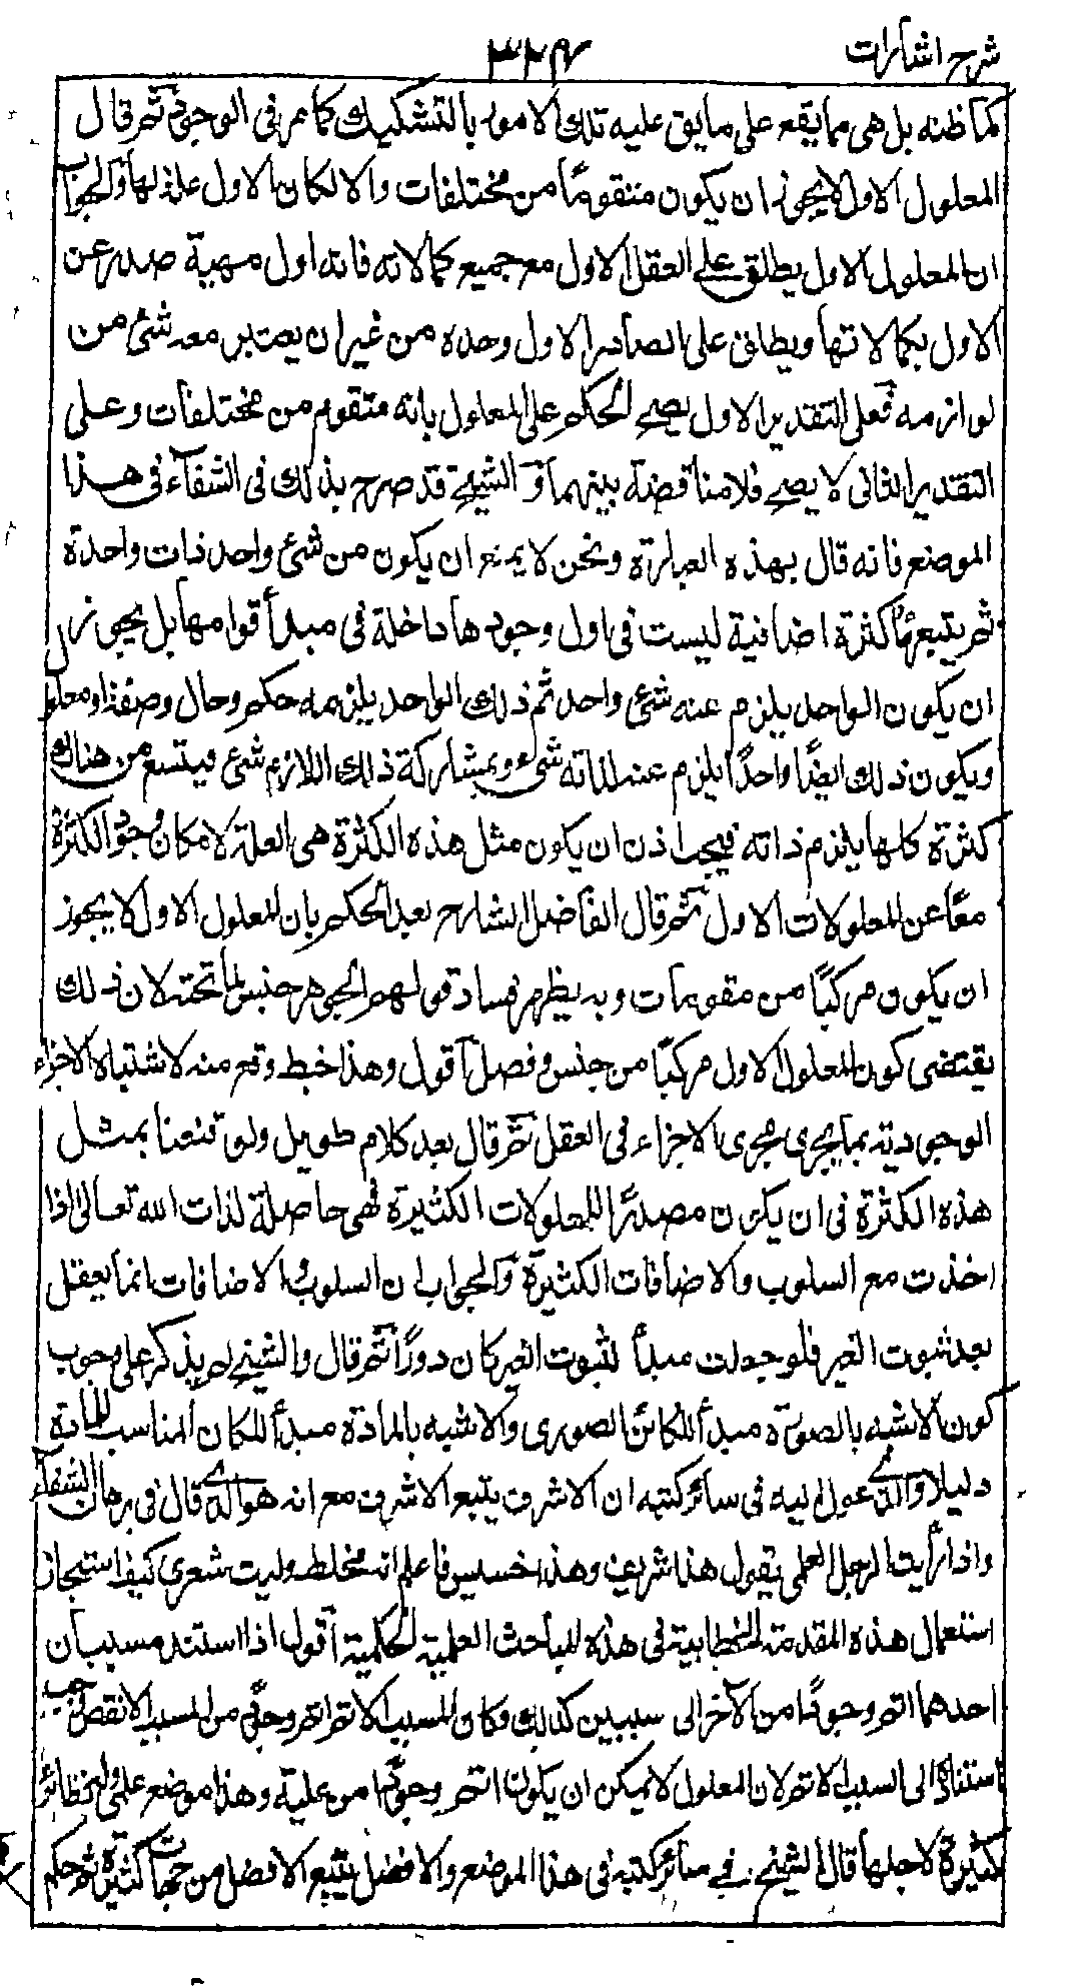 شرح اشارات
٣٢٤
كما ظنه بل هى مما يقع على ما يق عليه تلك الامور بالتشكيك كما مر فى الوجود ثم قال
المعلول الاول لايجوز ان يكون متقومًا من مختلفات والا لكان الاول علة لها والجواب
ان المعلول الاول يطلق على العقل الاول مع جميع كمالاته فانه اول مهية صدر عن
الاول بكمالاتها ويطلق على الصادر الاول وحده من غير ان يعتبر معه شئ من
لوازمه فعلى التقدير الاول يصح الحكم على المعلول بانه متقوم من مختلفات وعلى
التقدير الثانى لا يصح فلا مناقضة بينهما و الشيخ قد صرح بذلك فى الشفاء فى هذا
الموضع فانه قال بهذه العبارة ونحن لا يمنع ان يكون من شئ واحد ذات واحدة
ثم يتبعها كثرة اضافية ليست فى اول وجودها داخلة فى مبدأ قوامها بل يجوز
ان يكون الواحد يلزم عنه شئ واحد ثم ذلك الواحد يلزمه حكم وحال وصفة او معلول
ويكون ذلك ايضًا واحدًا يلزم عنه لذاته شئ وبمشاركة ذلك اللازم شئ فيتسع من هناك
كثرة كلها يلزم ذاته فيجب اذن ان يكون مثل هذه الكثرة هى العلة لامكان وجود الكثرة
معًا عن المعلولات الاول ثم قال الفاضل الشارح بعد الحكم بان المعلول الاول لا يجوز
ان يكون مركبًا من مقومات وبه يظهر فساد قولهم الجوهر جنس لما تحته لان ذلك
يقتضى كون المعلول الاول مركبًا من جنس وفصل اقول وهذا خبط وقع منه لاشتباه الاجزاء
الوجودية بما يجرى مجرى الاجزاء فى العقل ثم قال بعد كلام طويل ولو قنعنا بمثل
هذه الكثرة فى ان يكون مصدرًا للمعلولات الكثيرة فهى حاصلة لذات الله تعالى اذا
اخذت مع السلوب والاضافات الكثيرة والجواب ان السلوب والاضافات انما يعقل
بعد ثبوت الغير فلو جعلت مبدأ لثبوت الغير كان دورًا ثم قال والشيخ لم يذكر على وجوب
كون الاشبه بالصورة مبدأ للكائن الصورى والاشبه بالمادة مبدأ للكائن المناسب للمادة
دليلا والذى عول اليه فى سائر كتبه ان الاشرف يتبع الاشرف مع انه هو الذى قال فى برهان الشفاء
واذا رأيت الرجل العلمى يقول هذا شريف وهذا خسيس فاعلم انه مخلط وليت شعرى كيف استجاز
استعمال هذه المقدمة الخطابية فى هذه المباحث العلمية الحكمية اقول اذا استند مسببان
احدهما اتم وجودًا من الآخر الى سببين كذلك وكان المسبب الاتم اتم وجودًا من المسبب الانقص وجب
استناده الى السبب الاتم لان المعلول لا يمكن ان يكون اتم وجودًا من علته وهذا موضع علمى وله نظائر
كثيرة لاجلها قال الشيخ فى سائر كتبه فى هذا الموضع والافضل يتبع الافضل من جهات كثيرة ثم حكم